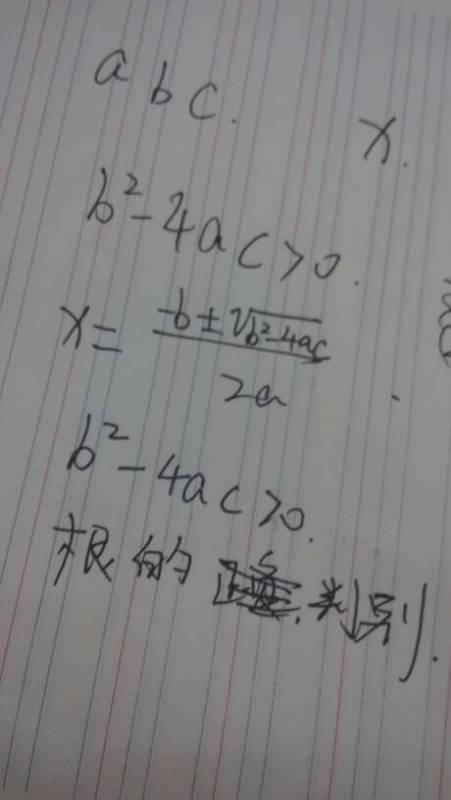 a b c.
x.
b²-4ac>0.
x= (-b±√(b²-4ac))/2a
b²-4ac>0.
根的 判别.